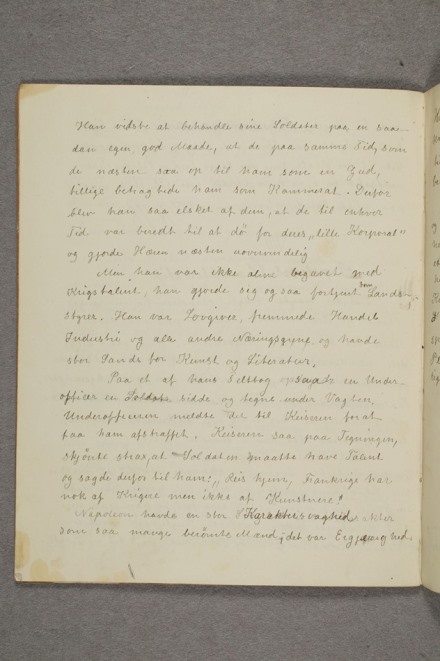 Han vidste at behandle sine Soldater paa en saa-
dan egen god Maade, at de paa samme Tid, som
de næsten saa op til ham som en Gud,
tillige betragtede ham som Kammerat. Derfor
blev han saa elsket af dem, at de til enhver
Tid var beredt til at dø for deres „lille Korporal"
og gjorde Hæren næsten uovervindelig
Men han var ikke alene begavet med
Krigstalent, han gjorde sig ogsaa fortjent som Lands-
styrer. Han var Lovgiver, fremmede Handel
Industri og alle andre Næringsgrene og havde
stor Sands for Kunst og Literatur.
Paa et af hans Felttog saa en Under-
officer en Soldat sidde og tegne under Vagten,
Underofficeren meldte det til Keiseren forat
faa ham afstraffet. Keiseren saa paa Tegningen,
skjönte strax, at Soldaten maatte have Talent
og sagde derfor til ham: „Reis hjem, Frankrige har
nok af Krigere men ikke af Kunstnere!"
Napoleon havde en stor Karaktersvaghed
som saa mange berömte Mænd; det var Ergjerrighed.